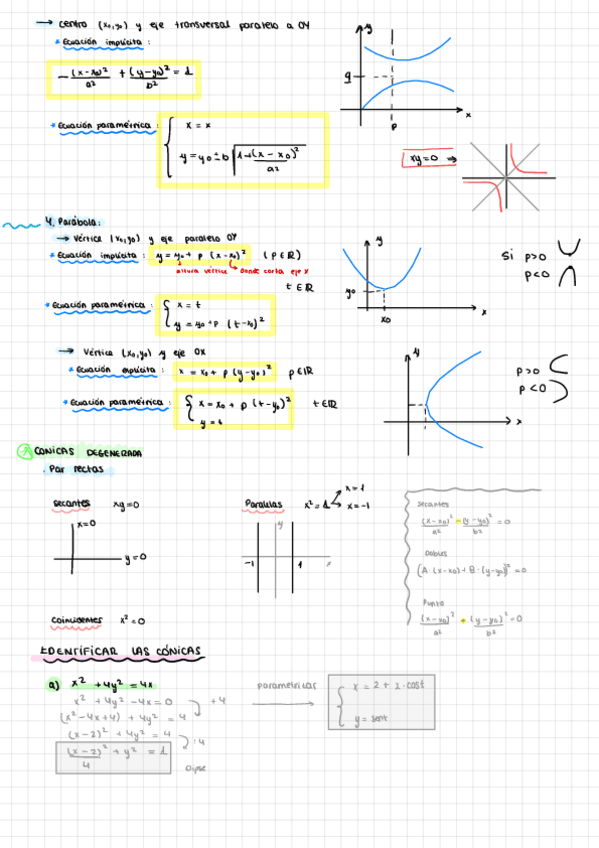 → Centro (x₀,y₀) y eje transversal paralelo a OY
* Ecuación implícita :
-(x-x₀)²/a² + (y-y₀)²/b² = 1
y
y
p
x
* Ecuación paramétrica : { x = x
y = y₀ ± b √(1+(x-x₀)²/a²)
xy=0 ⇒
4. Parábola:
→ Vértice (x₀,y₀) y eje paralelo OY
* Ecuación implícita : y = y₀ + p (x-x₀)² (p∈ℝ)
altura vértice
Donde corta eje x
t∈ℝ
y
y₀
x₀
x
Si p>0
p<0
* Ecuación paramétrica : { x = t
y = y₀ + p (t-x₀)²
→ Vértice (x₀,y₀) y eje OX
* Ecuación explícita : x = x₀ + p (y-y₀)² p∈ℝ
y
x
p>0
p<0
* Ecuación paramétrica : { x = x₀ + p (t-y₀)² t∈ℝ
y = t
CONICAS DEGENERADA
. Par rectas
Secantes xy=0
x=0
y=0
Paralelas x²=1
x=1
x=-1
y
-1
1
x
Secantes
(x-x₀)²/a² - (y-y₀)²/b² = 0
Dobles
(A·(x-x₀)+B·(y-y₀))² = 0
Punto
(x-x₀)²/a² + (y-y₀)²/b² = 0
Coincidentes x²=0
IDENTIFICAR LAS CÓNICAS
a) x² + 4y² = 4x
x² + 4y² - 4x = 0
+4
(x²-4x+4) + 4y² = 4
(x-2)² + 4y² = 4
:4
(x-2)²/4 + y² = 1
Elipse
parametricas
{ x = 2 + 2·cost
y = sent